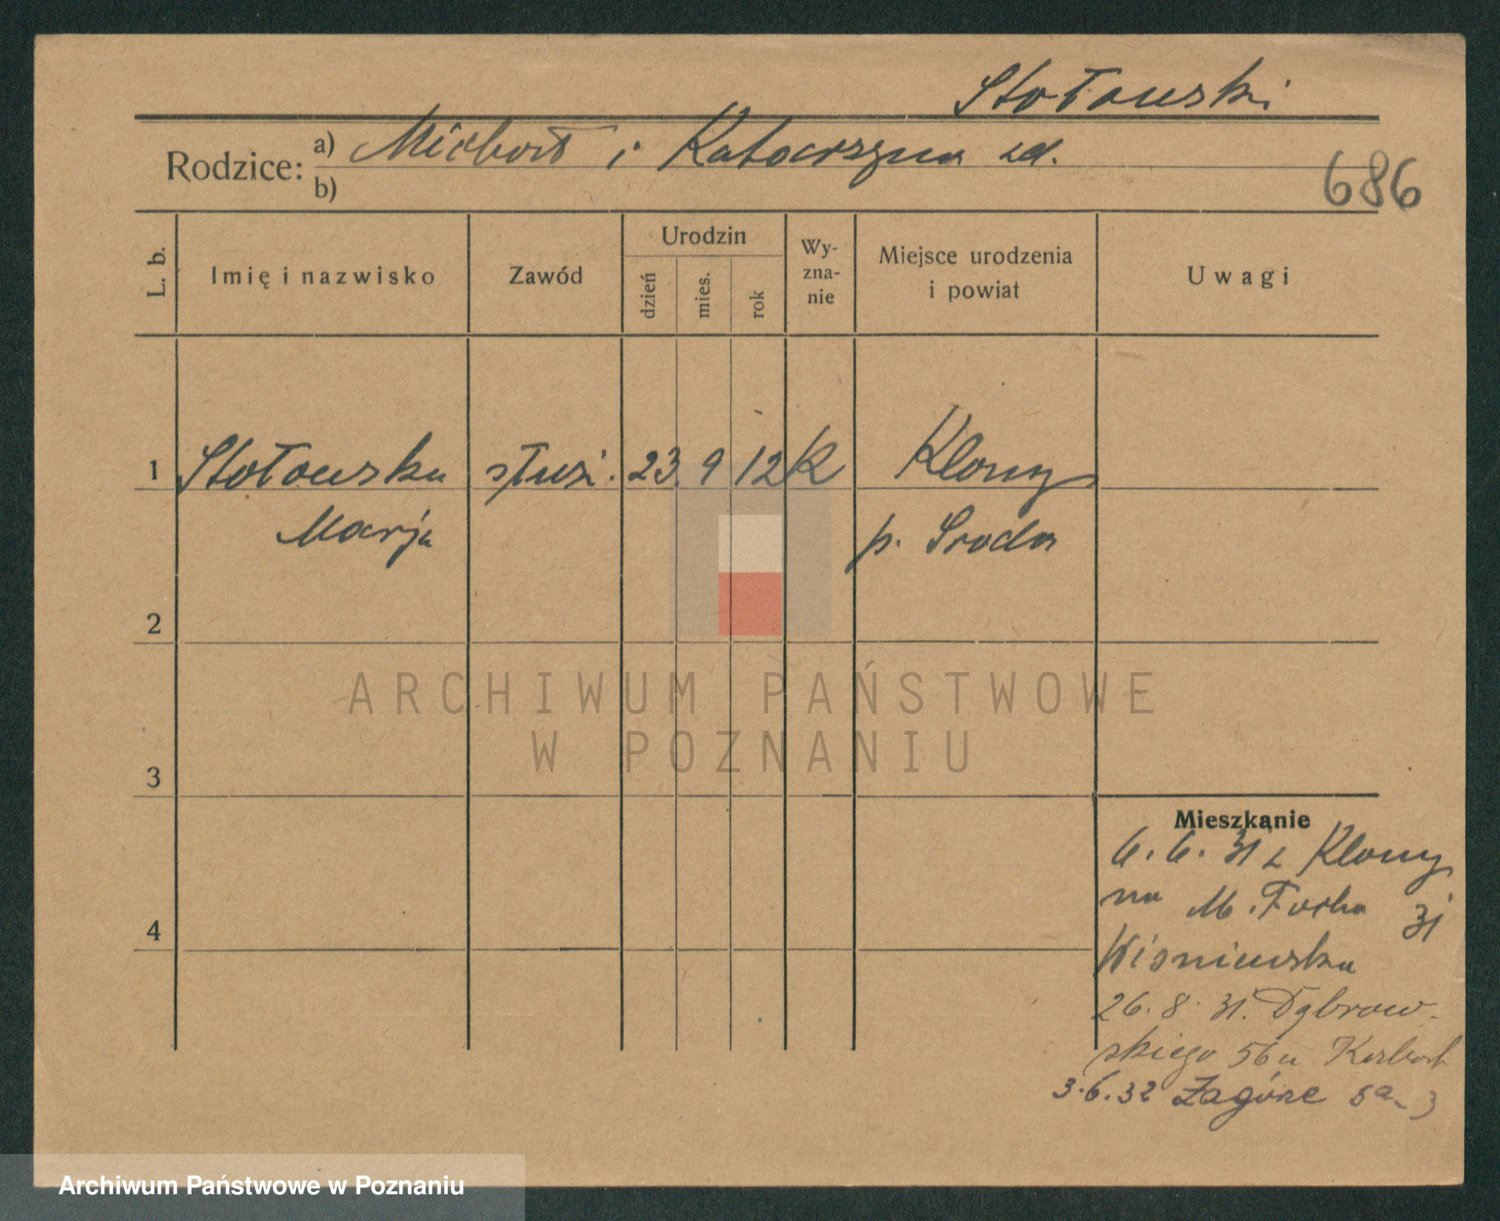 Stołowski
Rodzice: a) Michał i Katarzyna zd.
b)
686
L. b.
Imię i nazwisko
Zawód
Urodzin
dzień
mies.
rok
Wy-
zna-
nie
Miejsce urodzenia
i powiat
Uwagi
1 Stołowska służ. 23. 9 12 K Klony
Marja p. Sroda
2
ARCHIWUM PAŃSTWOWE
W POZNANIU
3
Mieszkanie
6. 6. 31 z Klony
na M. Focha 31
4
Wisniewska
26. 8. 31. Dąbrow-
skiego 56 u
3.6.32 Zagórze 5a-3
Archiwum Państwowe w Poznaniu